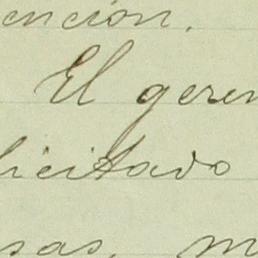 ención.
El geren
licitado
sas, m